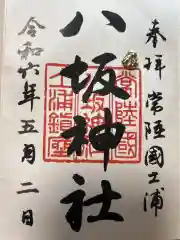 奉拝 常陸國土浦
八坂神社
令和六年五月二日
常陸國
八坂神社
土浦鎮守